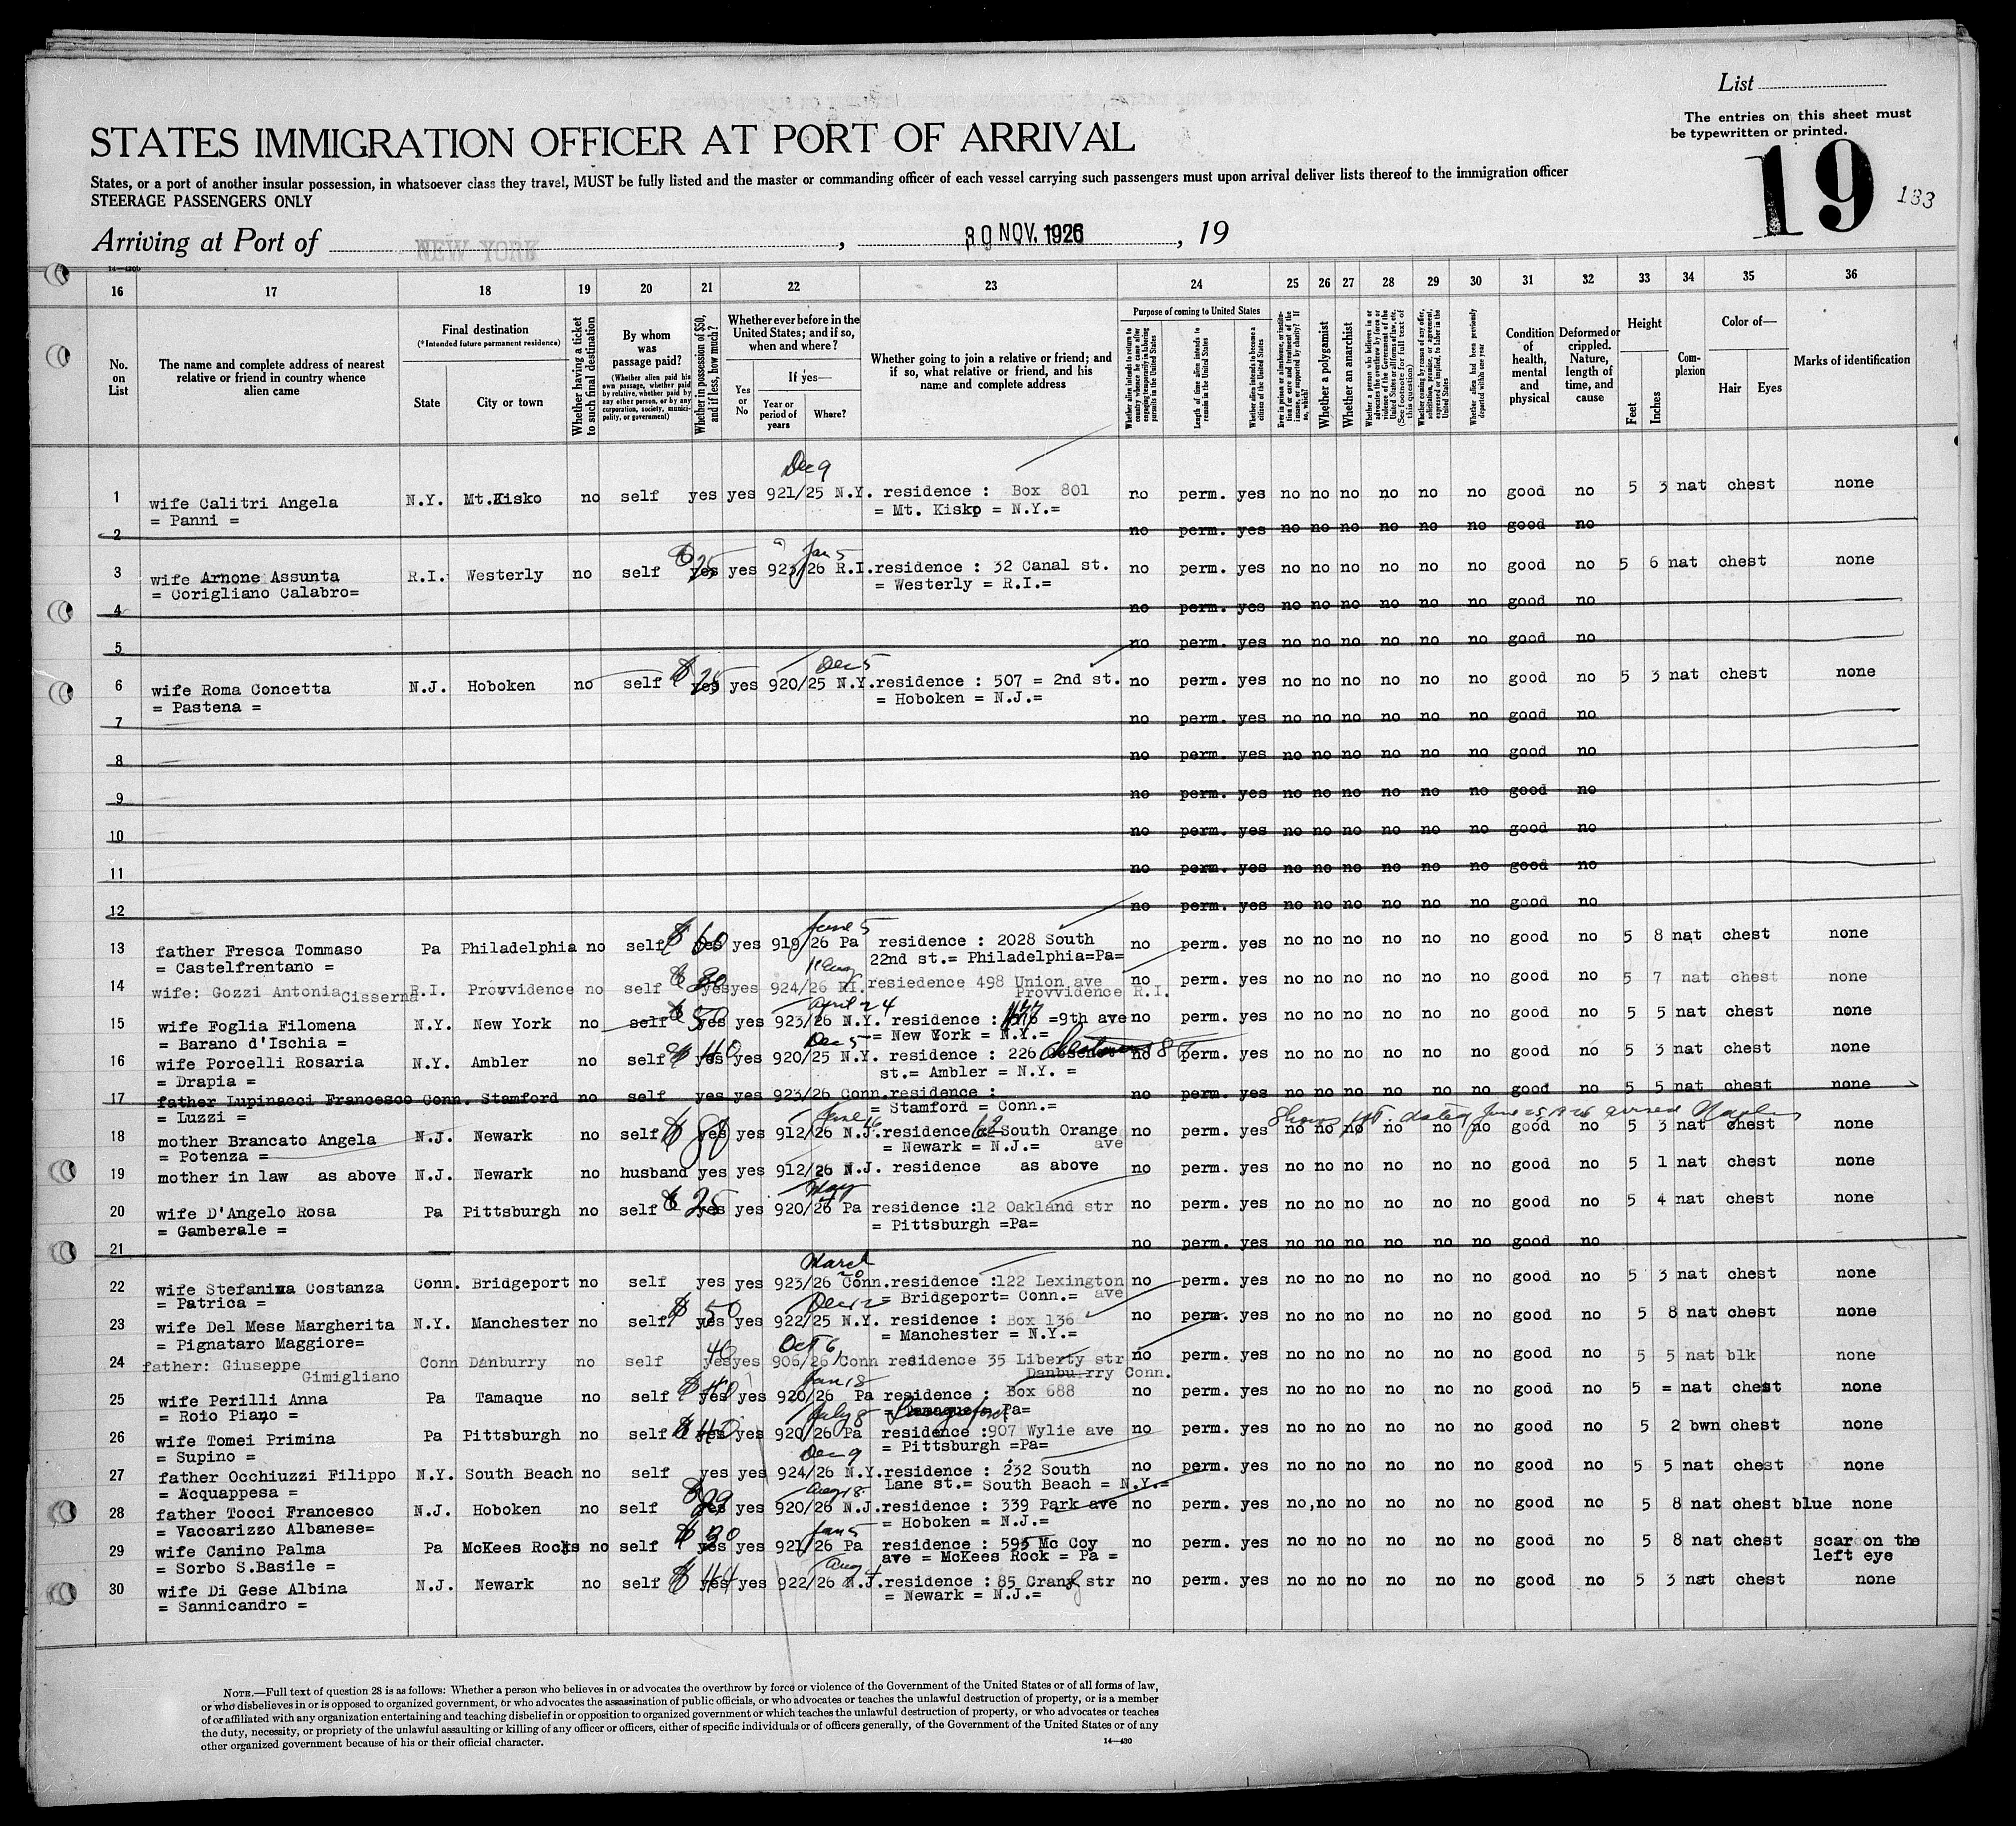 List
The entries on this sheet must
be typewritten or printed.
STATES IMMIGRATION OFFICER AT PORT OF ARRIVAL
19
133
States, or a port of another insular possession, in whatsoever class they travel, MUST be fully listed and the master or commanding officer of each vessel carrying such passengers must upon arrival deliver lists thereof to the immigration officer
STEERAGE PASSENGERS ONLY
Arriving at Port of NEW YORK, NOV. 1926, 19
16 17 18 19 20 21 22 23 24 25 26 27 28 29 30 31 32 33 34 35 36
No. on List
The name and complete address of nearest relative or friend in country whence alien came
Final destination
(*Intended future permanent residence)
State
City or town
Whether having a ticket to such final destination
By whom was passage paid?
(Whether alien paid his own passage, whether paid by relative, whether paid by any other person, or by any corporation, society, municipality, or government)
Whether in possession of $50, and if less, how much?
Whether ever before in the United States; and if so, when and where?
Yes or No
If yes—
Year or period of years
Where?
Whether going to join a relative or friend; and if so, what relative or friend, and his name and complete address
Purpose of coming to United States
Whether alien intends to return to country whence he came after engaging temporarily in laboring pursuits in the United States
Length of time alien intends to remain in the United States
Whether alien intends to become a citizen of the United States
Ever in prison or almshouse, or institution for care and treatment of the insane, or supported by charity? If so, which?
Whether a polygamist
Whether an anarchist
Whether a person who believes in or advocates the overthrow by force or violence of the Government of the United States or all forms of law, etc. (See footnote for full text of this question)
Whether coming by reason of any offer, solicitation, promise, or agreement, expressed or implied, to labor in the United States
Whether alien had been previously deported within one year
Condition of health, mental and physical
Deformed or crippled. Nature, length of time, and cause
Height
Feet
Inches
Complexion
Color of—
Hair
Eyes
Marks of identification
Dec 9
1 wife Calitri Angela N.Y. Mt.Kisko no self yes yes 921/25 N.Y. residence : Box 801 no perm. yes no no no no no no good no 5 3 nat chest none
= Panni = = Mt. Kisko = N.Y.=
2 no perm. yes no no no no no no good no
Jan 5
3 wife Arnone Assunta R.I. Westerly no self $25 yes yes 923/26 R.I. residence : 32 Canal st. no perm. yes no no no no no no good no 5 6 nat chest none
= Corigliano Calabro= = Westerly = R.I.=
4 no perm. yes no no no no no no good no
5 no perm. yes no no no no no no good no
Dec 5
6 wife Roma Concetta N.J. Hoboken no self $25 yes yes 920/25 N.Y. residence : 507 = 2nd st. no perm. yes no no no no no no good no 5 3 nat chest none
= Pastena = = Hoboken = N.J.=
7 no perm. yes no no no no no no good no
8 no perm. yes no no no no no no good no
9 no perm. yes no no no no no no good no
10 no perm. yes no no no no no no good no
11 no perm. yes no no no no no no good no
12 no perm. yes no no no no no no good no
June 5
13 father Fresca Tommaso Pa Philadelphia no self $60 yes yes 919/26 Pa residence : 2028 South no perm. yes no no no no no no good no 5 8 nat chest none
= Castelfrentano = 22nd st.= Philadelphia=Pa=
14 wife: Gozzi Antonia Cisserna R.I. Provvidence no self yes yes 924/26 RI. resiedence 498 Union ave no perm. yes no no no no no no good no 5 7 nat chest none
Provvidence R.I.
April 24
15 wife Foglia Filomena N.Y. New York no self $50 yes yes 923/26 N.Y. residence : =9th ave no perm. yes no no no no no no good no 5 5 nat chest none
= Barano d'Ischia = = New York = N.Y.=
Dec 5
16 wife Porcelli Rosaria N.Y. Ambler no self $40 yes yes 920/25 N.Y. residence : 226 no perm. yes no no no no no no good no 5 3 nat chest none
= Drapia = st.= Ambler = N.Y. =
17 father Lupinacci Francesco Conn. Stamford no self yes yes 923/26 Conn. residence : no perm. yes no no no no no no good no 5 5 nat chest none
= Luzzi = = Stamford = Conn.=
June 16 Shows dated June 25 1926 Naples
18 mother Brancato Angela N.J. Newark no self $80 yes yes 912/26 N.J. residence 62 South Orange no perm. yes no no no no no no good no 5 3 nat chest none
= Potenza = = Newark = N.J.= ave
19 mother in law as above N.J. Newark no husband yes yes 912/26 N.J. residence as above no perm. yes no no no no no no good no 5 1 nat chest none
May
20 wife D'Angelo Rosa Pa Pittsburgh no self $25 yes yes 920/26 Pa residence :12 Oakland str no perm. yes no no no no no no good no 5 4 nat chest none
= Gamberale = = Pittsburgh =Pa=
21 no perm. yes no no no no no no good no
March 20
22 wife Stefanina Costanza Conn. Bridgeport no self yes yes 923/26 Conn. residence :122 Lexington no perm. yes no no no no no no good no 5 3 nat chest none
= Patrica = = Bridgeport= Conn.= ave
Dec 12
23 wife Del Mese Margherita N.Y. Manchester no self $50 yes yes 922/25 N.Y. residence : Box 136 no perm. yes no no no no no no good no 5 8 nat chest none
= Pignataro Maggiore= = Manchester = N.Y.=
Oct 6
24 father: Giuseppe Conn Danburry no self 40 yes yes 906/26 Conn residence 35 Liberty str no perm. yes no no no no no no good no 5 5 nat blk none
Gimigliano Danburry Conn.
Jan 18
25 wife Perilli Anna Pa Tamaque no self yes yes 920/26 Pa residence : Box 688 no perm. yes no no no no no no good no 5 = nat chest none
= Roio Piano = = Tamaque= Pa=
July 8
26 wife Tomei Primina Pa Pittsburgh no self $40 yes yes 920/26 Pa residence :907 Wylie ave no perm. yes no no no no no no good no 5 2 bwn chest none
= Supino = = Pittsburgh =Pa=
Dec 9
27 father Occhiuzzi Filippo N.Y. South Beach no self yes yes 924/26 N.Y. residence : 232 South no perm. yes no no no no no no good no 5 5 nat chest none
= Acquappesa = Lane st.= South Beach = N.Y.=
Aug 18
28 father Tocci Francesco N.J. Hoboken no self yes yes 920/26 N.J. residence : 339 Park ave no perm. yes no, no no no no no good no 5 8 nat chest blue none
= Vaccarizzo Albanese= = Hoboken = N.J.=
Jan 5
29 wife Canino Palma Pa McKees Rocks no self $30 yes yes 921/26 Pa residence : 595 Mc Coy no perm. yes no no no no no no good no 5 8 nat chest scar on the
= Sorbo S.Basile = ave = McKees Rock = Pa = left eye
Aug 4
30 wife Di Gese Albina N.J. Newark no self $44 yes yes 922/26 N.J. residence : 85 Crane str no perm. yes no no no no no no good no 5 3 nat chest none
= Sannicandro = = Newark = N.J.=
NOTE.—Full text of question 28 is as follows: Whether a person who believes in or advocates the overthrow by force or violence of the Government of the United States or of all forms of law,
or who disbelieves in or is opposed to organized government, or who advocates the assassination of public officials, or who advocates or teaches the unlawful destruction of property, or is a member
of or affiliated with any organization entertaining and teaching disbelief in or opposition to organized government or which teaches the unlawful destruction of property, or who advocates or teaches
the duty, necessity, or propriety of the unlawful assaulting or killing of any officer or officers, either of specific individuals or of officers generally, of the Government of the United States or of any
other organized government because of his or their official character.
14—430